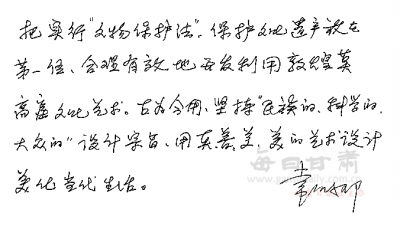 把实行“文物保护法”、保护文化遗产放在
第一位、合理有效地开发利用敦煌莫
高窟文化艺术。古为今用、坚持“民族的、科学的、
大众的”设计宗旨、用真善美、美的艺术设计
美化当代生活。
常沙娜
每日甘肃